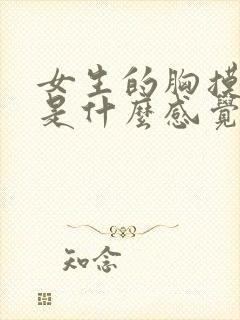 女生的胸摸
是什麼感覺
知念